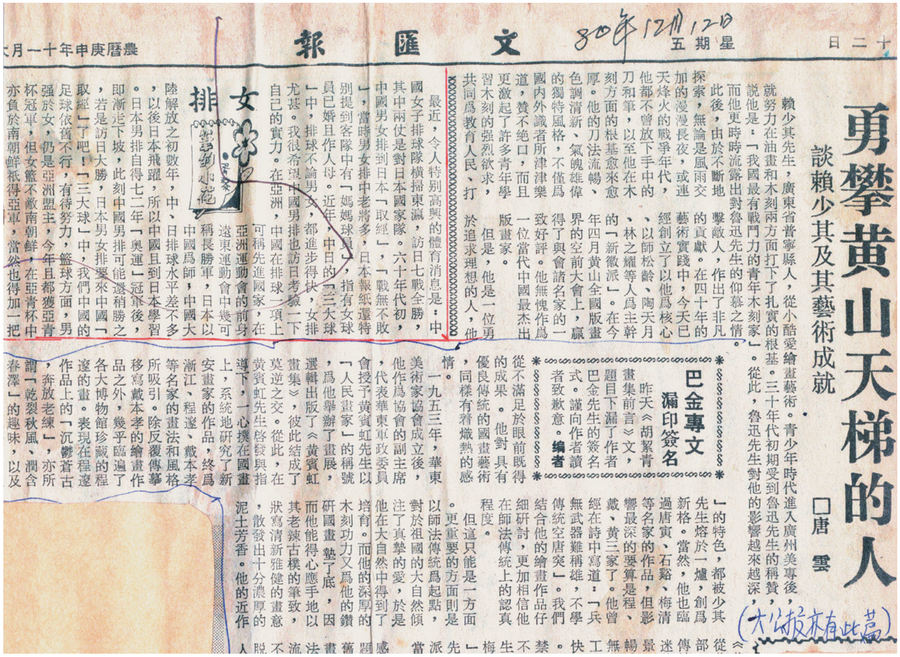 十二日
星期五
80年12月12日
文匯報
農曆庚申年十一月大
勇攀黄山天梯的人
談賴少其及其藝術成就
口唐雲
(大公報亦有此篇)
賴少其先生，廣東省普寧縣人，從小酷愛繪畫藝術。青少年時代進入廣州美專後，
就努力在油畫和木刻兩方面打下了扎實的根基。三十年代初期受到魯迅先生的稱贊，
說他是：「我國最有戰鬥力的青年木刻家」。從此，魯迅先生對他的影響越來越深，
而他更時時流露出對魯迅先生的仰慕之情。
此後，由於不斷地
探索，無論是風雨交
加的漫漫長夜，或連
天烽火的戰爭年代，
他都不曾放下手中的
刀和筆，以至他在木
刻方面的根基愈來愈
厚。他的刀法流暢、
色調清新、氣魄雄偉
的獨特風格，不僅爲
國內外識者所津津樂
道，贊不絕口，而且
更激起了許多青年學
習木刻的強烈欲求，
共同爲教育人民、打
擊敵人，作出了非凡
的貢獻。在四十年的
藝術實踐中，今天已
經創立了以他爲核心
、以師松齡、陶天月
、林之耀等人爲主幹
的「新徽派」。在
年四月黄山全國版畫
界的空前大會上，贏
得了與會諸名家的一
致好評。他無愧作爲
一位當代中國最杰出
版畫家。
但是，他是一位勇
於追求理想的人，他
從不滿足於眼前既得
的成果。他對具有
優良傳統的國畫藝術
，同樣有着熾熱的感
情。
一九五三年，華東
美術家協會成立後，
他作爲協會的副主席
，代表華東軍政委員
會授予黄賓虹先生以
「人民畫家」的稱號
，爲他舉辦了畫展，
選輯出版了《黄賓虹
畫集》，彼此結成了
莫逆之交。從此，在
黄賓虹先生啓發與指
導下，一心撲在國畫
上，系統地研究了新
安畫家的作品，終爲
漸江、程邃、戴本孝
等名家的畫法和風格
所吸引。除反復傳摹
移寫戴本孝的繪畫作
品之外，幾乎臨遍了
各大博物館珍藏的程
邃的畫。表現在程邃
作品上的「沉鬱蒼古
，奔放老練」，亦所
謂「乾裂秋風、潤含
春澤」的趣味，以及
」的特色，都被少其
先生熔於一爐，創爲
新格。當然，他也臨
過唐寅、石谿、梅清
等名家的作品，但影
響最深的要算是程、
戴、黄三家了。他曾
經在詩中寫道：「兵
無武器難稱雄，不學
傳統空唐突」。我們
結合他的繪畫作品仔
細研討，更加相信他
在師法傳統上的認真
程度。
但這只能是一方面
。更重要的方面則是
以師法傳統爲起點，
對於祖國的大自然傾
注了真摯的愛，於是
他在大自然中得到了
培育。而他的深厚的
木刻功力又爲他的鑽
研國畫墊了底，因
而他能得心應手地以
其老辣古樸的筆致，
狀寫清新雅健的畫意
，散發出十分濃厚的
泥土芳香。他的近作
巴金專文
漏印簽名
昨天《胡絜青
畫集前言》文，
題目下漏了作者
巴金先生的簽名
式。謹向作者讀
者致歉意。編者
女排
最近，令人特別高興的體育消息是：中
國女子排球隊橫掃東瀛，訪日七戰全勝，
其中兩仗是對日本國家隊。六十年代初，
中國男女排到日本「取經」，戰無不敗
，當時男女排中老將多，日本報紙還特
別提到客隊中有「媽媽球員」，指有女球
員已婚且作人母。近年，中日的「三大球
」中，排球不論男女，都進步得快，女排
尤甚。我很希望中國男排也訪日考驗一下
自己的實力。在亞洲，中日在排球一項上
可稱先進國家，在
遠東運動會中幾可
亞洲運動會的前身
稱長勝軍，日本以
中國爲師，中國大
陸解放之初數年，中、日排球水平差不多
，以後日本飛躍，所以中國且到日本學習
。日本男排自得七二年「奧運」冠軍後，
即漸走下坡，此刻中國男排可能還稍勝之
，若是訪日大勝，日本男女排要來中國「
取經」了吧！「三大球」中，我們中國的
足球依舊不行，有待努力，籃球方面，男
强於女，仍是亞洲盟主，今年且都獲亞青
杯冠軍，但女籃不敵南朝鮮，在亞青杯中
亦負於南朝鮮衹得亞軍，當然也得加一把